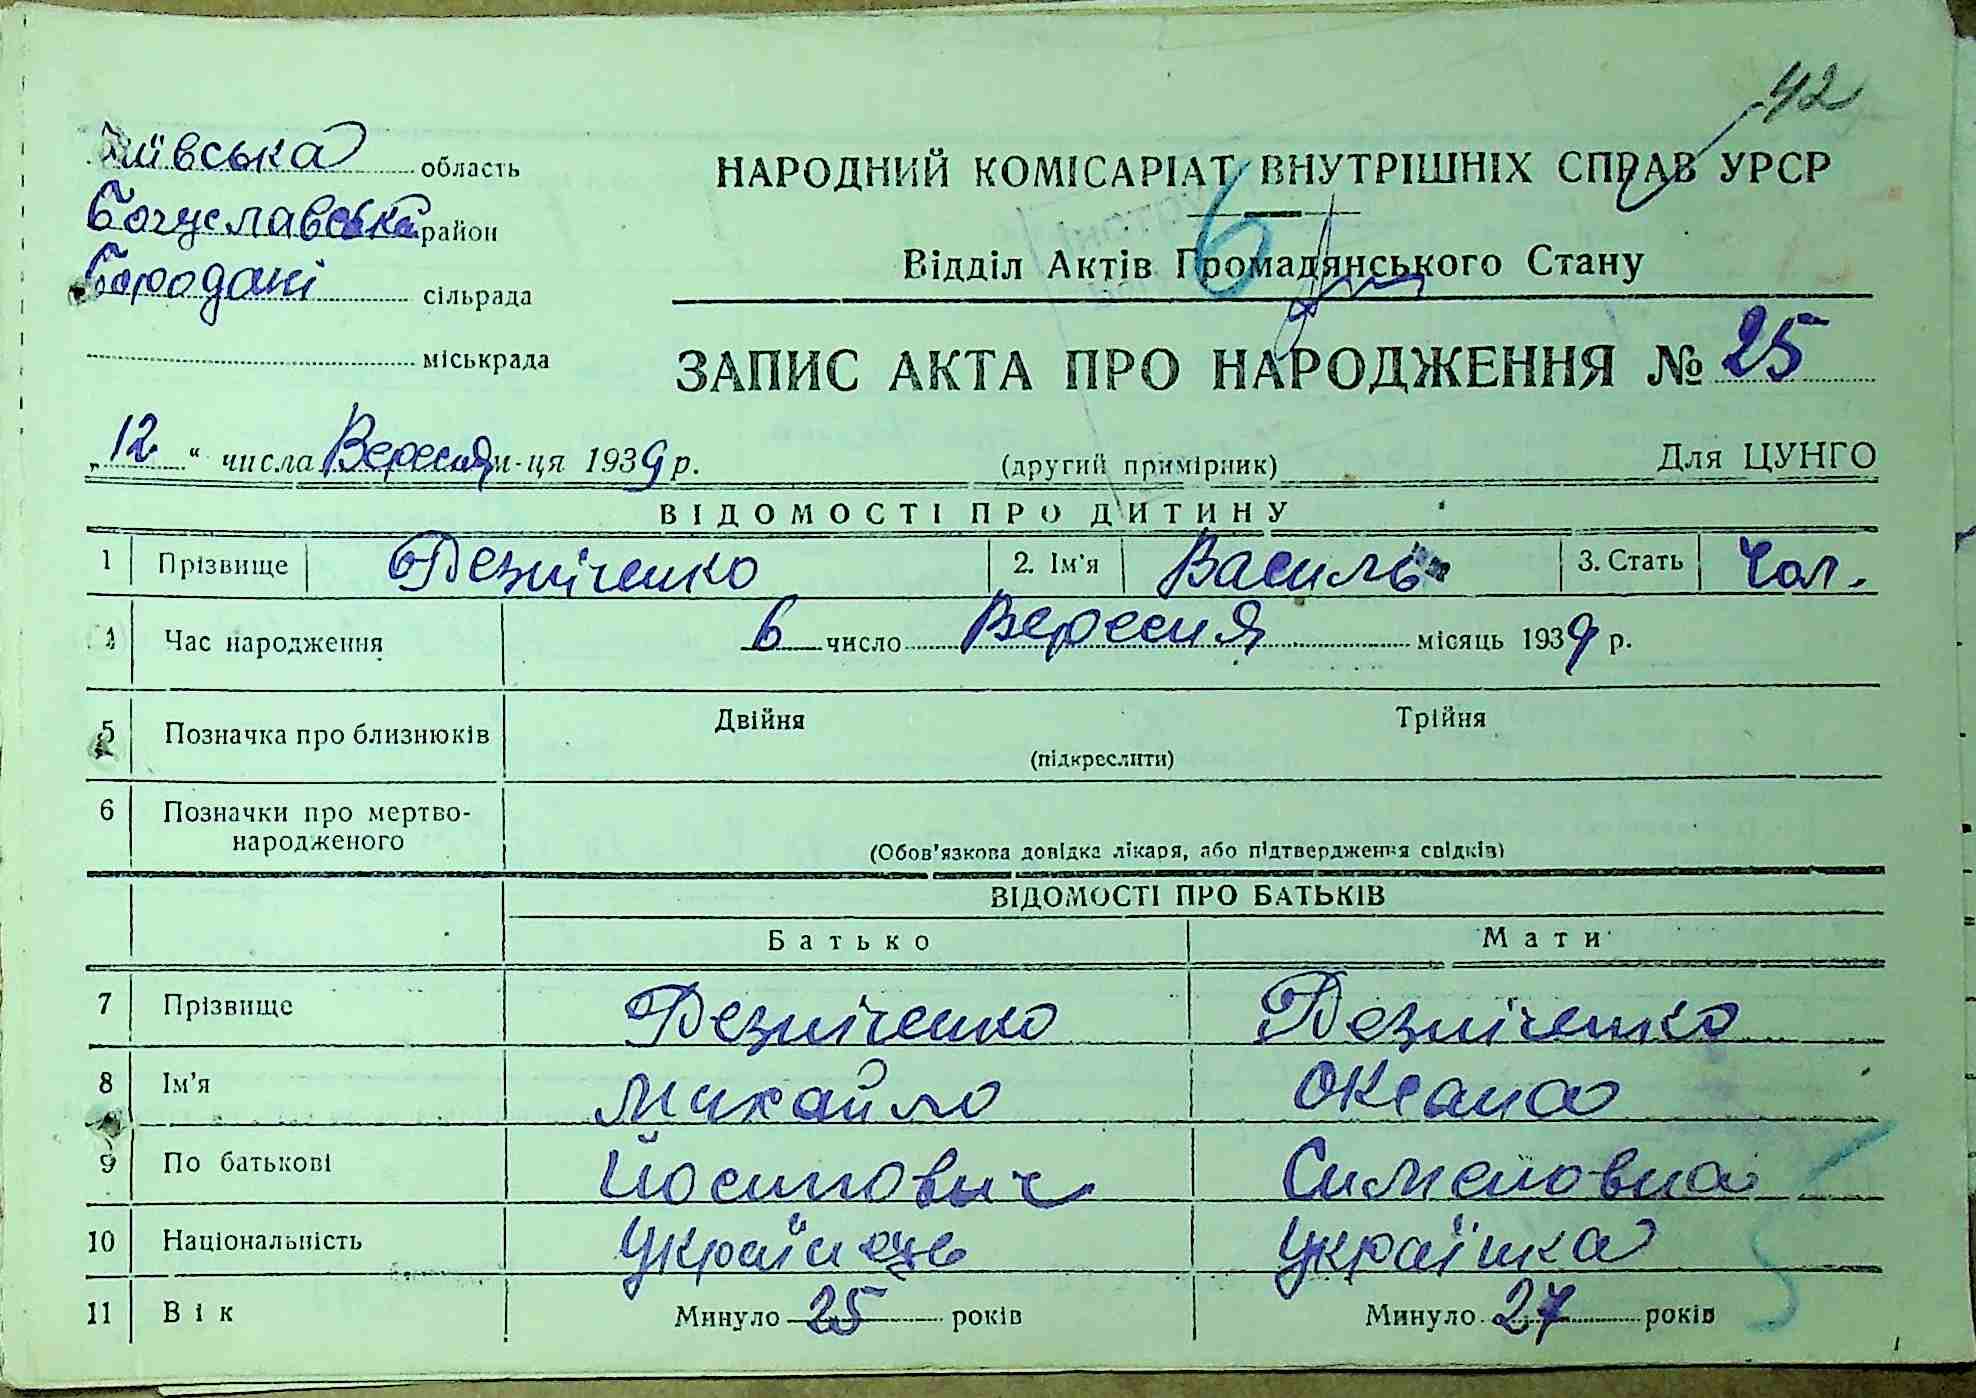 42
Київська область
Богуславська район
Бородані сільрада
міськрада
НАРОДНИЙ КОМІСАРІАТ ВНУТРІШНІХ СПРАВ УРСР
6
Відділ Актів Громадянського Стану
ЗАПИС АКТА ПРО НАРОДЖЕННЯ № 25
„12“ числа Вересня м-ця 1939 р. (другий примірник) Для ЦУНГО
ВІДОМОСТІ ПРО ДИТИНУ
1 Прізвище Рєзніченко 2. Ім'я Василь 3. Стать Чол.
4 Час народження 6 число Вересня місяць 1939 р.
5 Позначка про близнюків Двійня Трійня
(підкреслити)
6 Позначки про мертво-
народженого
(Обов'язкова довідка лікаря, або підтвердження свідків)
ВІДОМОСТІ ПРО БАТЬКІВ
Батько Мати
7 Прізвище Рєзніченко Рєзніченко
8 Ім'я Михайло Оксана
9 По батькові Йосипович Сименовна
10 Національність Українець Українка
11 Вік Минуло 25 років Минуло 27 років